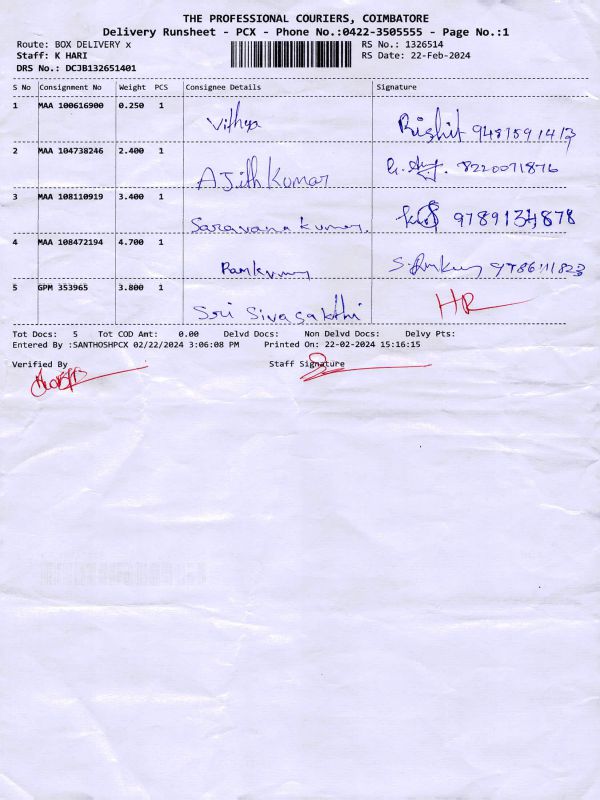 THE PROFESSIONAL COURIERS, COIMBATORE
Delivery Runsheet - PCX - Phone No.:0422-3505555 - Page No.:1
Route: BOX DELIVERY x RS No.: 1326514
Staff: K HARI RS Date: 22-Feb-2024
DRS No.: DCJB132651401
S No Consignment No Weight PCS Consignee Details Signature
1 MAA 100616900 0.250 1 Vithya Rishit
2 MAA 104738246 2.400 1 AJith Kumar 8220071876
3 MAA 108110919 3.400 1 Saravana Kumar. 9789134878
4 MAA 108472194 4.700 1 Ramkumar 9786111823
5 GPM 353965 3.800 1 Sri Sivasakthi HR
Tot Docs: 5 Tot COD Amt: 0.00 Delvd Docs: Non Delvd Docs: Delvy Pts:
Entered By :SANTHOSHPCX 02/22/2024 3:06:08 PM Printed On: 22-02-2024 15:16:15
Verified By Staff Signature